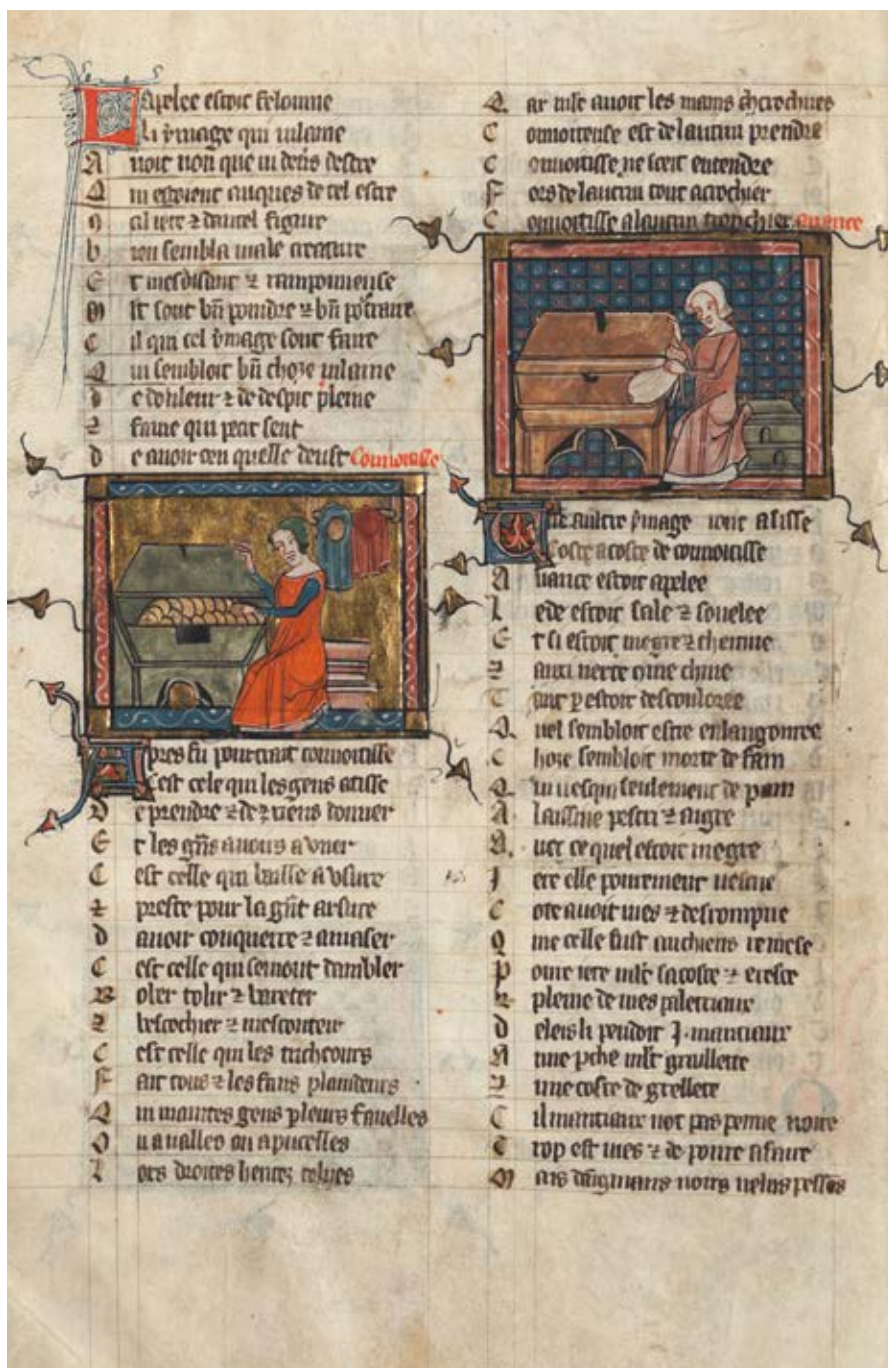 Apelee estoit felonne
Li ymage qui vilaine
A voit non que vi delis destre
Q ui estoient auques de tel estre
C il iere ⁊ dautel figure
b ien sembla male creature
E t mesdisant ⁊ ramponneuse
M lt sout bn poindre ⁊ bn portraire
C il qui cel ymage sout faire
Q ui sembloit bn chose vilaine
d e douleur ⁊ de despit pleine
⁊ fame qui petit sent
d e avoir ceu quelle deust Couvoitise
Apres fu pourtrait couvoitisse
Cest cele qui les gens atisse
D e prendre ⁊ de riens donner
E t les gns avoirs a vner
C est celle qui baille a usure
⁊ preste pour la gnt arsure
d avoir conquerre ⁊ amasser
C est celle qui semont dambler
R ober tolir ⁊ bareter
⁊ bescochier ⁊ mesconter
C est celle qui les tricheours
F ait tous ⁊ les faus plaideurs
Q ui maintes gens pleurs favelles
O u a valles ou a pucelles
L ors droites heritez tolues
Q ar mlt avoit les mains chrochues
C ouvoiteuse est de lautrui prendre
C ouvoitisse ne scet entendre
F ors de lautrui tout acrochier
C ouvoitisse a lautrui trop chier avarice
Une aultre ymage iont assisse
Coste a coste de couvoitisse
A varice estoit apelee
L ede estoit sale ⁊ foulee
E t si estoit megre ⁊ chetive
⁊ aussi verte come chive
T ant p estoit descoulouree
Q uel sembloit estre enlangouree
C hose sembloit morte de fam
Q ui vesqui seulement de pain
A laissive pestri ⁊ aigre
A vec ce quel estoit megre
I ere elle povrement vestue
C ote avoit vies ⁊ desrompue
Q me celle fust au chiens remese
P ovre iere mlt sa coste ⁊ erese
⁊ pleine de vies paletiaux
d eles li pendoit .I. mantiaux
A une pche mlt graillette
⁊ une coste de
C il mantiaux not pas penne noire
T rop est vies ⁊ de povre afaire
M ais daigniaus noirs velus